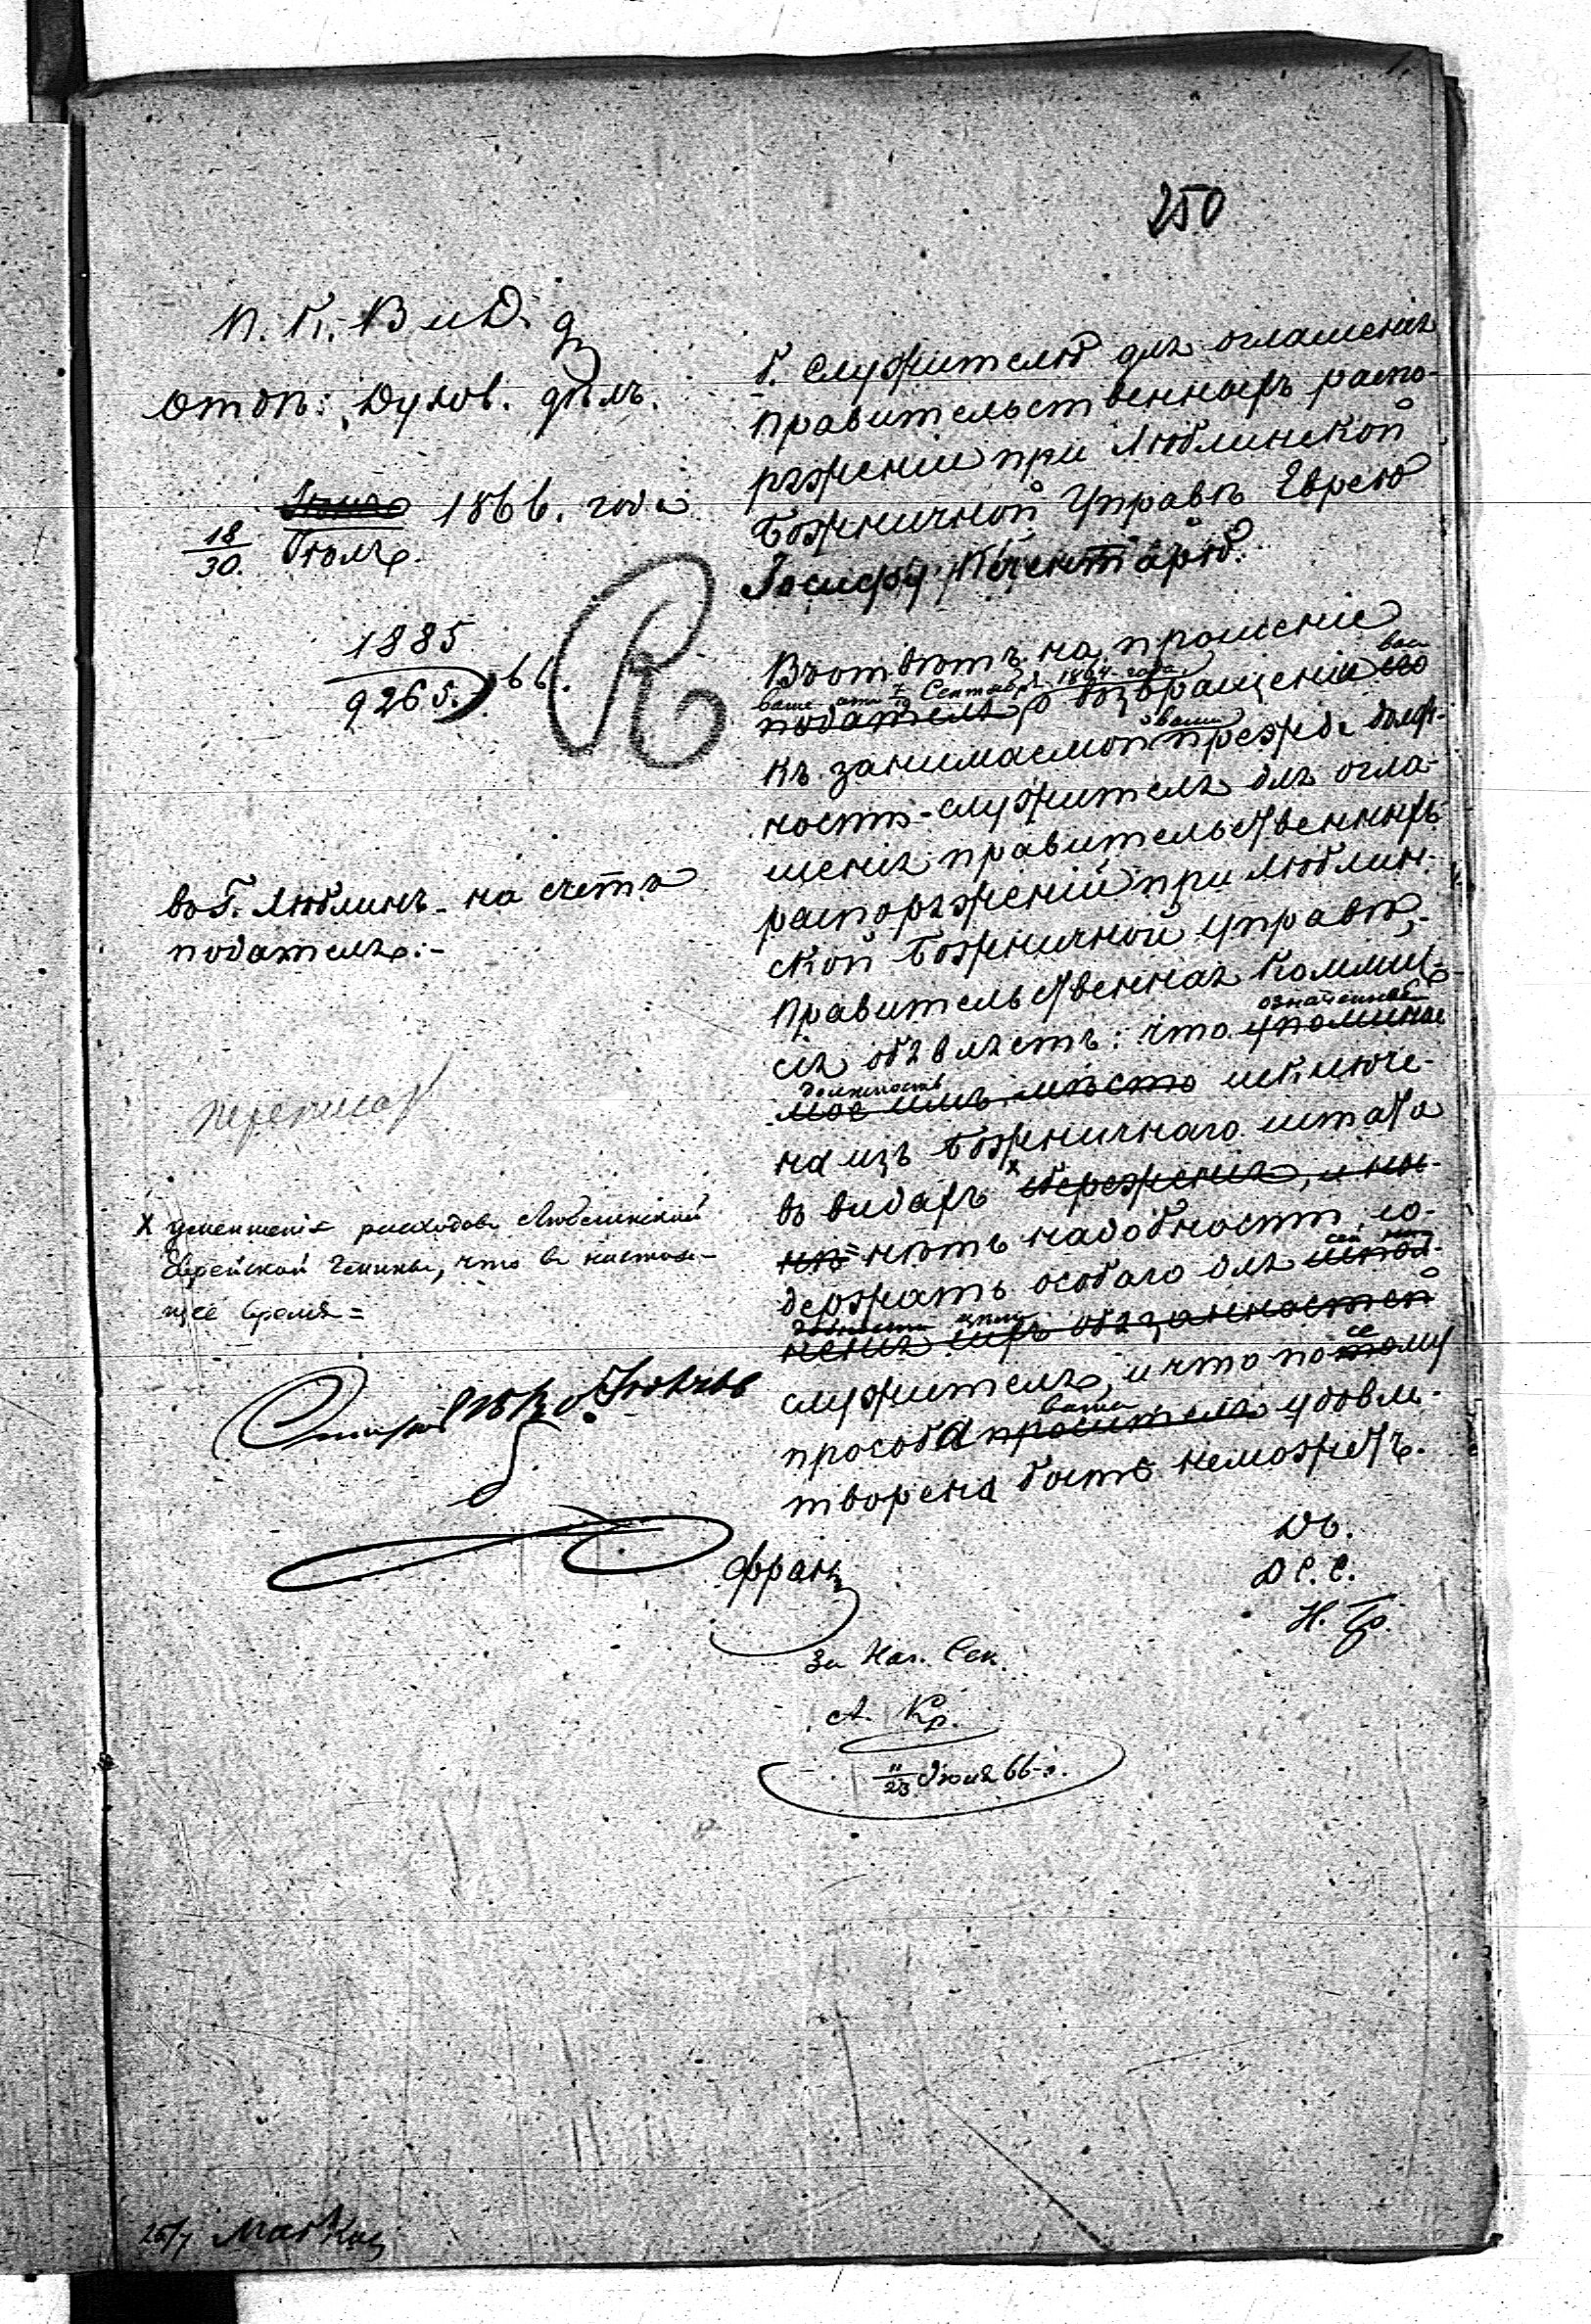 250
П. К. В и Д. д
Отдѣ: Духов. дѣлъ.
Іюля 1866. года
18/30. Іюля.
1885
9265. 66.
R
въ Г. Люблинъ на счетъ
подателя:-
X уменшенія расходовъ Люблинской
Еврейской Гмины, что въ настоя-
щее время=
б. Служителю для оглашенія
правительственныхъ распо-
ряженіи при Люблинской
Божничной Управѣ Еврею
Іосифу
Въ отвѣтъ на прошеніе
ваше отъ 7/19 Сентября 1864 года ваш
подателя, о возвращеніи его
вами
къ занимаемой прежде долж-
ности-служителя для огла-
шенія правительственныхъ
распоряженій при Люблин-
ской Божничной Управѣ,-
Правительственная Коммис-
означенная
сія объявляетъ: что упомина
должность
мое имъ мѣсто исключе-
на изъ Божничнаго штата
въ видахъ X сбереженія, и ны-
нѣ= нѣтъ надобности, со-
сей
держать особаго для испол-
ненія ихъ обязанностей
служителя, и что по се тому
ваша
прозьба просителя удовле-
творена быть неможетъ.
Дб.
Д С. С.
Н. Гр.
Франц
За Нач. Сек.
А. Кр.
11/23 Іюля 66 г.
25/7